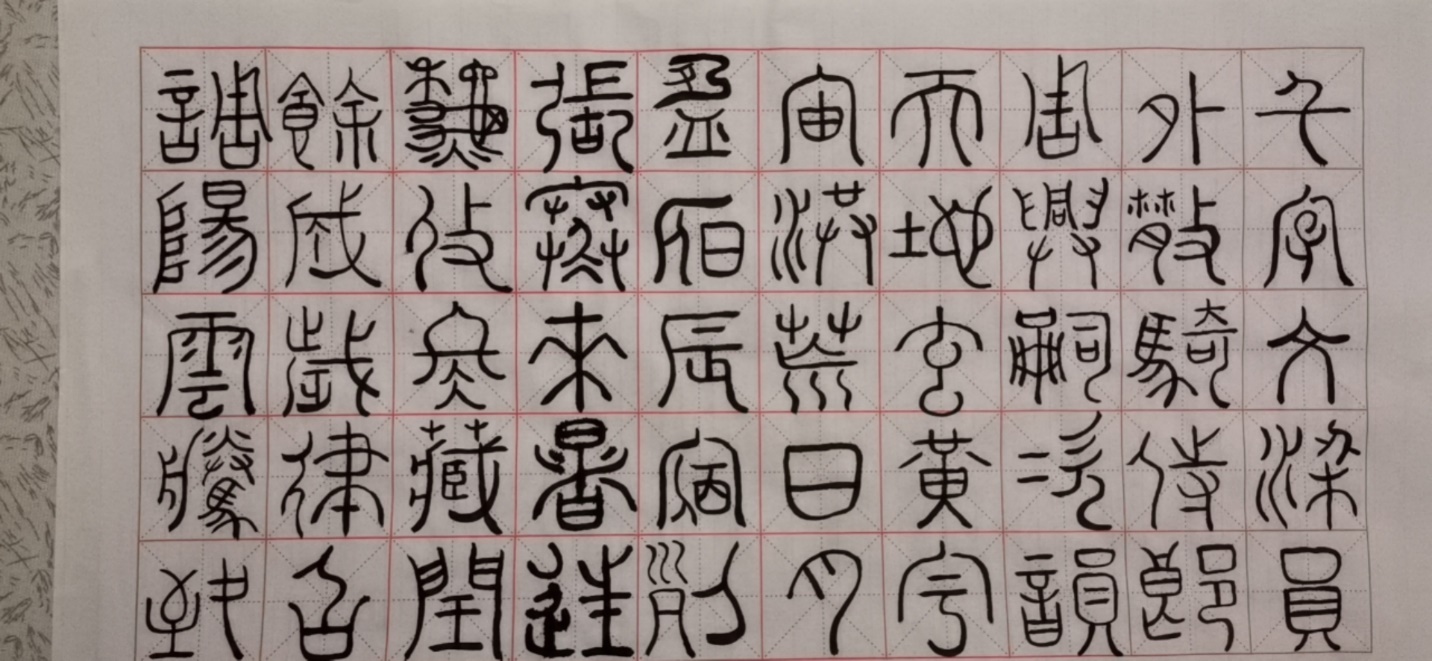 千字文梁員
外散騎侍郎
周興嗣次韻
天地玄黃宇
宙洪荒日月
盈昃辰宿列
張寒來暑往
秋收冬藏閏
餘成歲律召
調陽雲騰致